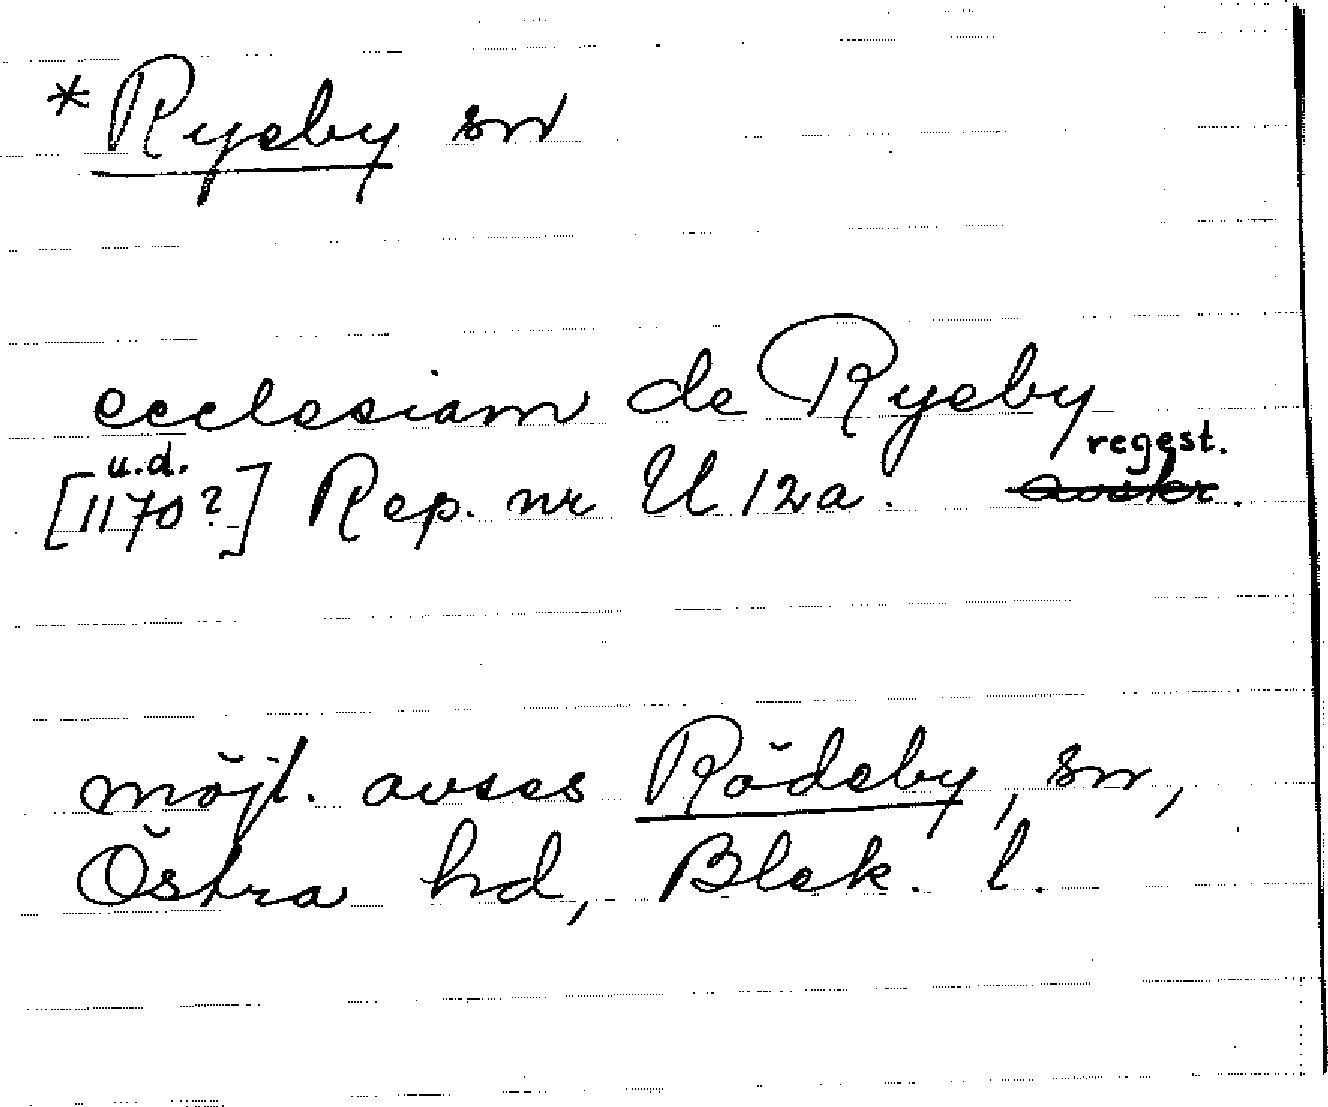 *Ryeby sn
ecclesiam de Ryeby
u.d. regest.
[1170?] Rep. nr U 12a. avskr.
möjl. avses Rödeby, sn,
Östra hd, Blek. l.